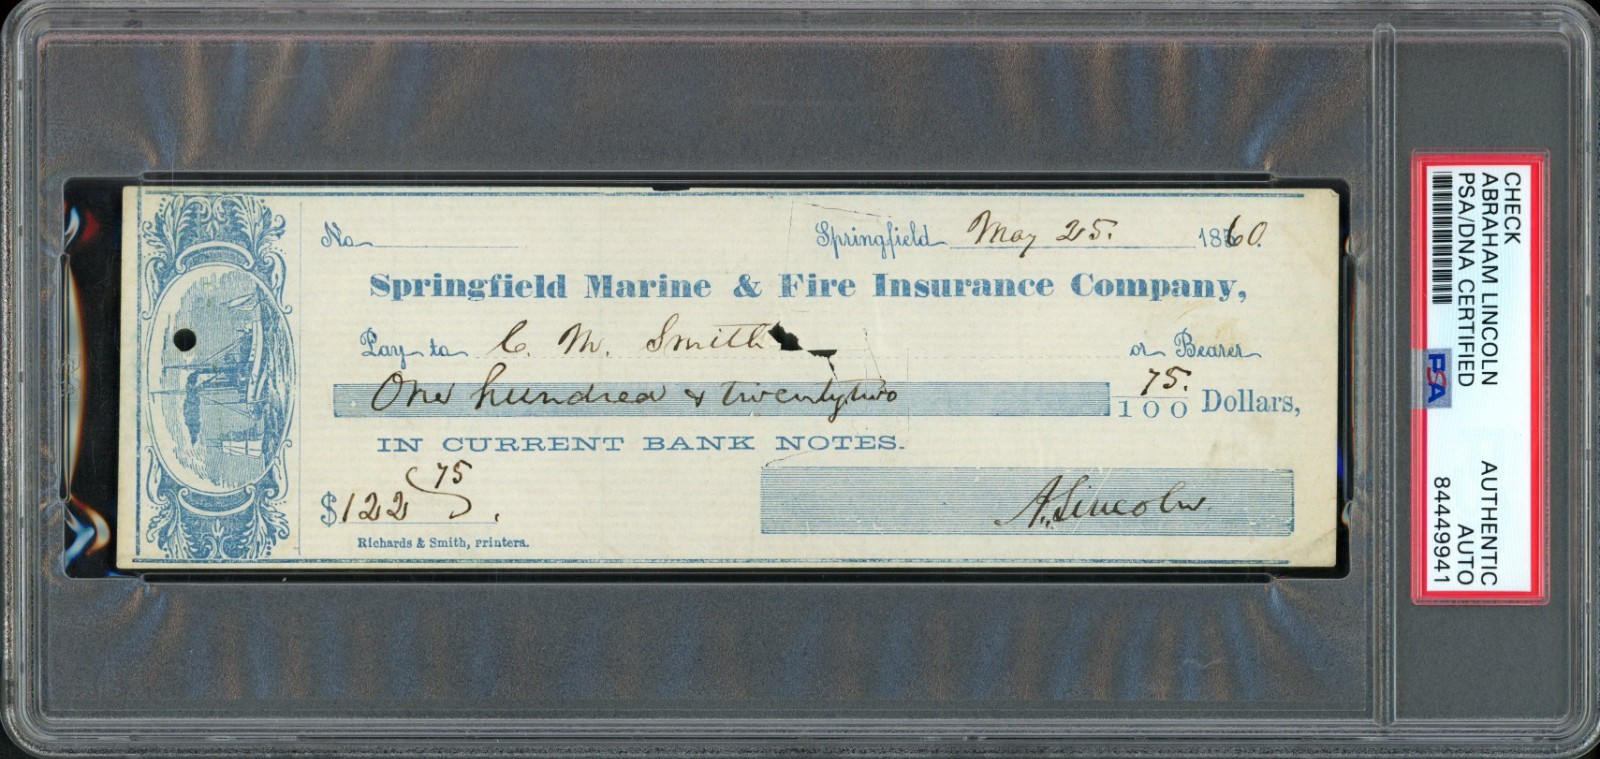 No.
Springfield May 25. 1860.
Springfield Marine & Fire Insurance Company,
Pay to C. M. Smith or Bearer
One hundred & twentytwo 75.
100 Dollars,
IN CURRENT BANK NOTES.
$122 75.
A. Lincoln
Richards & Smith, printers.
CHECK
ABRAHAM LINCOLN
PSA/DNA CERTIFIED
AUTHENTIC
AUTO
84449941
PSA